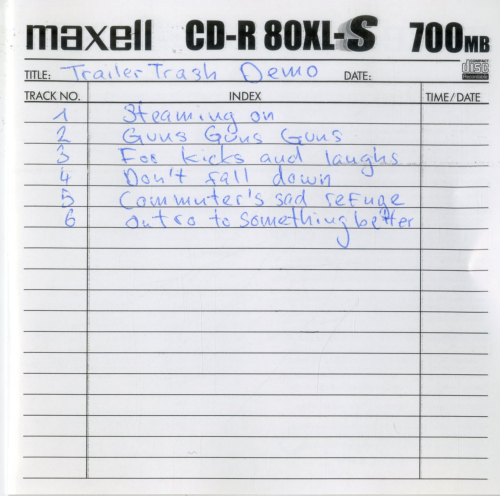 maxell CD-R 80XL-S 700MB
TITLE: Trailer Trash Demo DATE:
TRACK NO. INDEX TIME/DATE
1 Steaming on
2 Guns Guns Guns
3 For kicks and laughs
4 Don't fall down
5 Commuter's sad refuge
6 Outro to something better